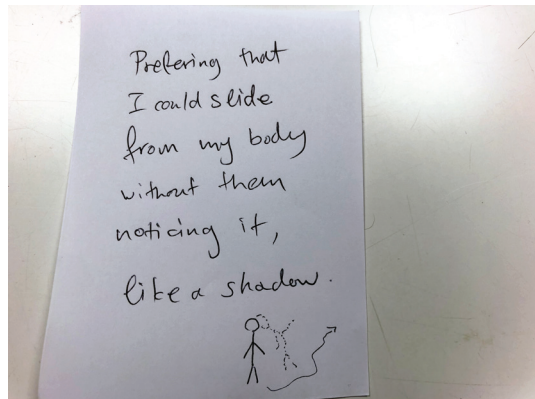 Prefering that
I could slide
from my body
without them
noticing it,
like a shadow.